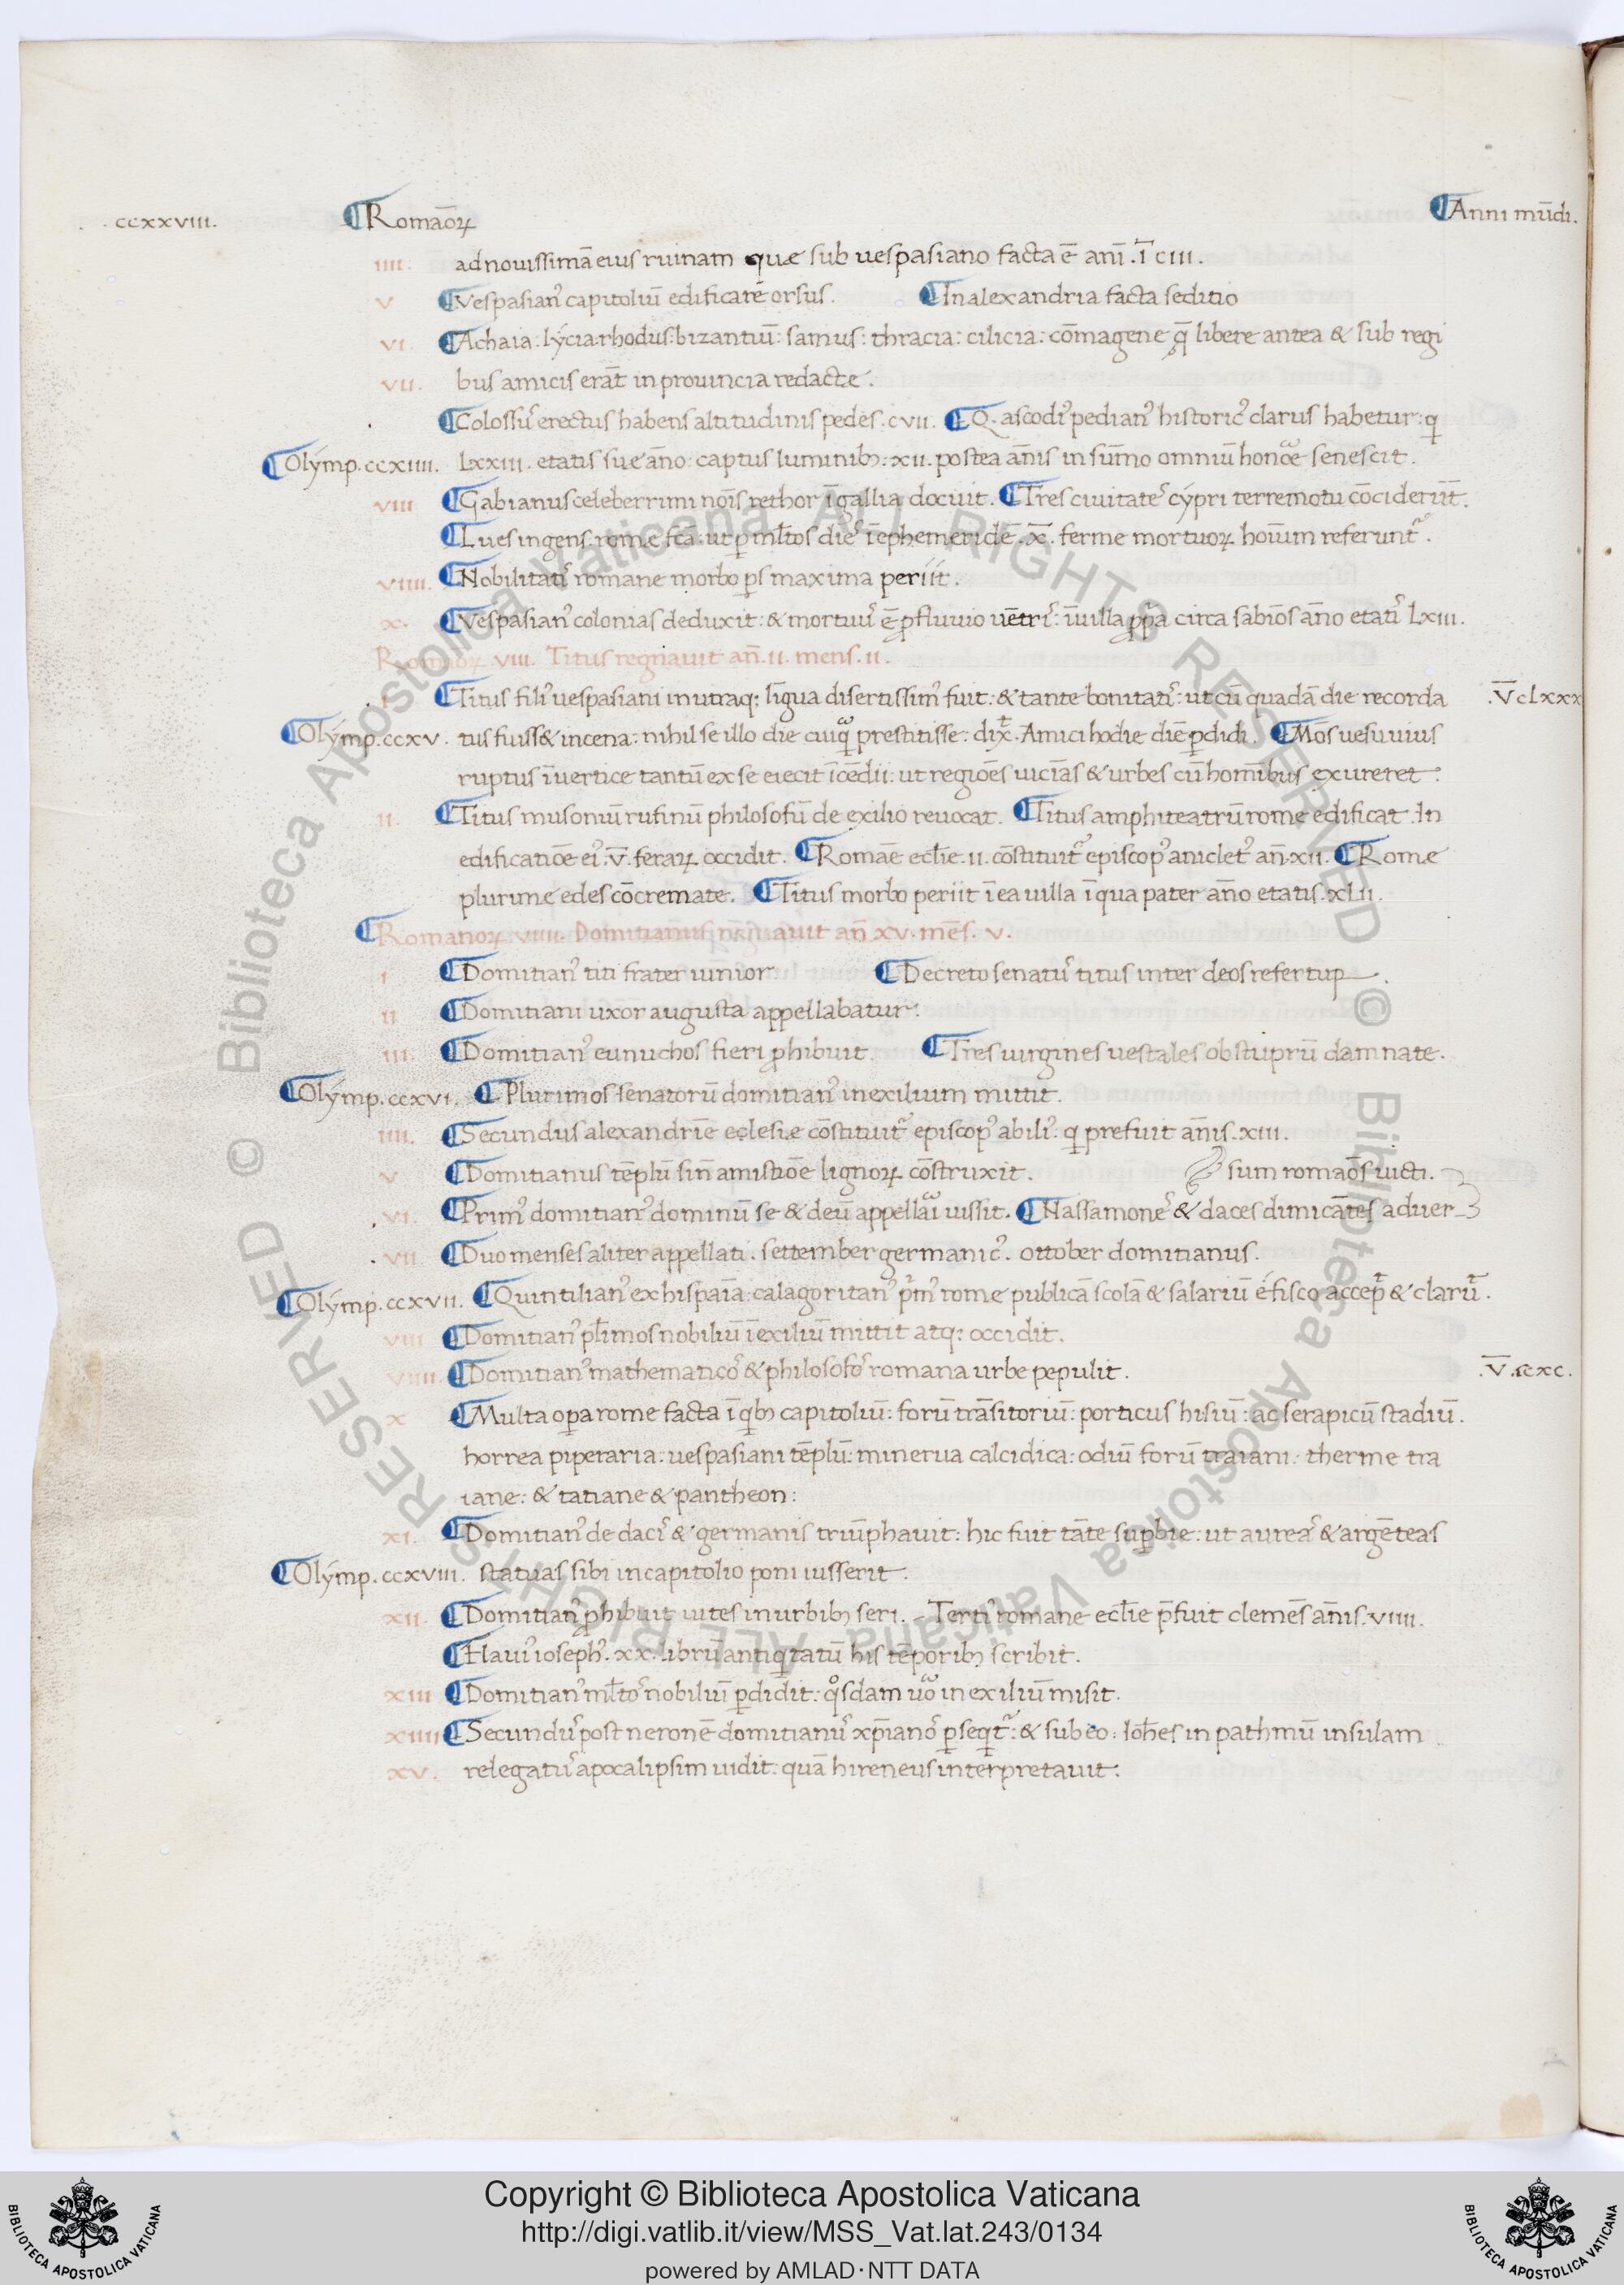 ccxxviii. Romāoꝝ Anni mūdi.
iiii. ad nouissimā eius ruinam que sub uespasiano facta ē ani̅ .i̅ ciii.
v Vespasianꝰ capitoliū edificare̅ orsus. In alexandria facta seditio
vi. Achaia: lýcia rhodus: bizantiū: samus: thracia: cilicia: cōmagene q̄ libere antea & sub regi
vii. bus amicis erāt in prouincia redacte.
Colossꝰ erectus habens altitudinis pedes. cvii. Q. ascodꝰ pedianꝰ historicꝰ clarus habetur: q
Olýmp. ccxiiii. lxxiii. etatis sue año: captus luminibꝫ: xii. postea an̄is in sūmo omniū honoe senescit.
viii Gabianus celeberrimi nōis rethor ī gallia docuit. Tres ciuitateˢ cýpri terremotu cōciderūt.
Lues ingens rome fcā: ut ꝑ ml̄tos dieˢ ī ephemeridē .x̅. ferme mortuoꝝ hoīum referunt᷑.
viiii. Nobilitatiˢ romane morbo ꝑs maxima periit.
x. Vespasianꝰ colonias deduxit: & mortuuˢ ē ꝓfluuio uētriˢ: ī uilla ꝓpa circa sabiōs año etatiˢ lxiii.
Romaoꝝ viii. Titus regnauit an̄. ii. mens. ii.
i Titus filiꝰ uespasiani in utraqꝫ līgua disertissimꝰ fuit: & tante bonitatiˢ: ut cū quadā die recorda .V̅ clxxx
Olýmp. ccxv. tus fuiss& in cena: nihil se illo die cuiq̃ prestitisse: dix̄t. Amici hodie diē ꝑdidi. Mōs uesuuius
ruptus ī uertice tantū ex se eiecit īcēdii: ut regiōes uicīas & urbes cū homībus exureret:
ii. Titus musoniū rufinū philosofū de exilio reuocat. Titus amphiteatrū rome edificat. In
edificatiōe eiꝰ .v̅. feraꝝ occidit. Romāe eccl̄ie. ii. cōstituit᷑ episcopꝰ anicletꝰ an̄. xii. Rome
plurime edes cōcremate. Titus morbo periit ī ea uilla ī qua pater año etatis. xlii.
Romanoꝝ. viiii. Domitianus regnauit an̄ xv. mēs. v.
i Domitianꝰ titi frater iunior Decreto senatuˢ titus inter deos refertur.
ii Domitiani uxor augusta appellabatur.
iii. Domitianꝰ eunuchos fieri ꝓhibuit. Tres uirgines uestales ob stuprū damnate.
Olýmp. ccxvi. Plurimos senatorū domitianꝰ in exilium mittit.
iiii. Secundus alexandriē eclesie cōstituit᷑ episcopꝰ abiliꝰ. q prefuit an̄is. xiii.
v Domitianus tēplū sin̄ amistiōe lignoꝝ cōstruxit. sum romaōs uicti.
vi. Primꝰ domitianꝰ dominū se & deū appellai iussit. Nassamoneˢ & daces dimicātes aduer
vii. Duo menses aliter appellati. settember germanicꝰ. ottober domitianus.
Olýmp. ccxvii. Quintilianꝰ ex hispaīa: calagoritanꝰ pⁱmꝰ rome publicā scolā & salariū é fisco accep̄t & clarū᷑.
viii Domitianꝰ pl̄imos nobiliū ī exiliū mittit atqꝫ occidit.
viiii. Domitianꝰ mathematicoˢ & philosofoˢ romana urbe pepulit. .V̅. cxc.
x Multa oꝑa rome facta ī qⁱbꝫ capitoliū: forū trāsitoriū: porticus hisiū: ac serapicū stadiū.
horrea piperaria: uespasiani tēplū: minerua calcidica: odiū forū traiani: therme tra
iane: & tatiane & pantheon:
xi. Domitianꝰ de daciˢ & germanis triūphauit: hic fuit tāte suꝑbie: ut aureaˢ & argēteas
Olýmp. ccxviii. statuas sibi in capitolio poni iusserit.
xii. Domitianꝰ ꝓhibuit uites in urbibꝫ seri. Tertiꝰ romane eccl̄ie p̄fuit clemēs an̄is. viiii.
Flauiꝰ iosephꝰ. xx. librū antiqⁱtatū his tēporibꝫ scribit.
xiii Domitianꝰ ml̄toˢ nobiliū ꝑdidit: qᵒsdam uo in exiliū misit.
xiiii Secundꝰ post neronē domitianuˢ xp̄ianoˢ ꝑseqⁱt᷑: & sub eo: Ioh̄es in pathmū insulam
xv. relegatuˢ apocalipsim uidit: quā hireneus interpretauit:
Copyright © Biblioteca Apostolica Vaticana
http://digi.vatlib.it/view/MSS_Vat.lat.243/0134
powered by AMLAD·NTT DATA